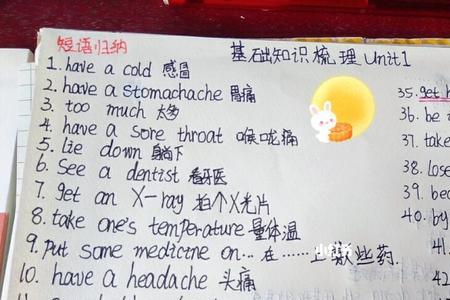 短语归纳
基础知识梳理 Unit1
1. have a cold 感冒
2. have a stomachache 胃痛
3. too much 太多
4. have a sore throat 喉咙痛
5. lie down 躺下
6. See a dentist 看牙医
7. get an X-ray 拍个X光片
8. take one's temperature 量体温
9. Put some medicine on… 在……上敷些药.
10. have a headache 头痛
35. get
36. be
37. take
38. lose
39. be
40. by
41.
42